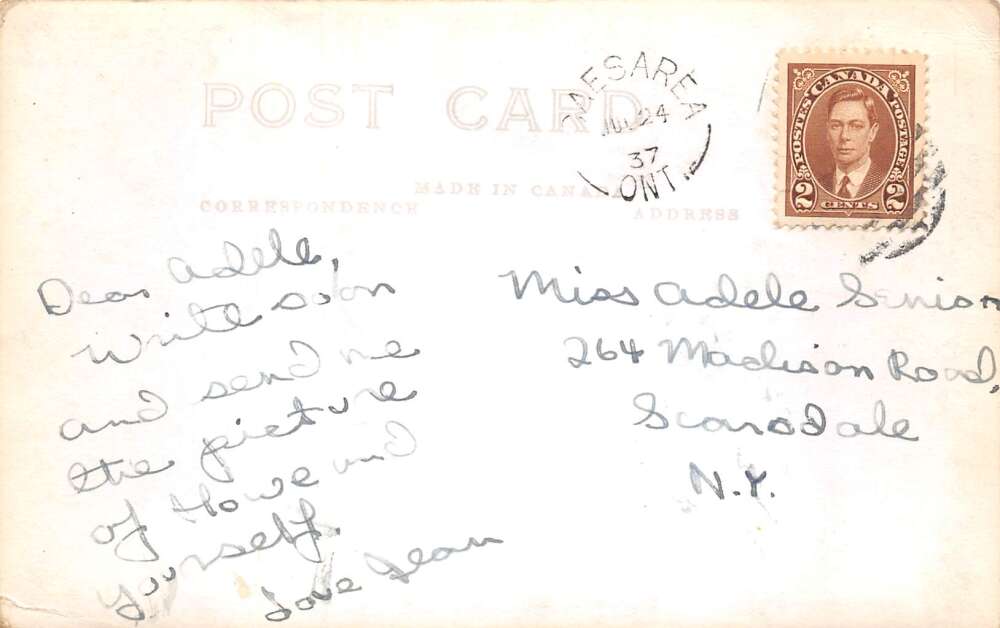 POST CARD
CAESAREA
JUL 24
37
ONT.
POSTES CANADA POSTAGE
2 CENTS 2
MADE IN CANADA
CORRESPONDENCE
ADDRESS
Dear Adele,
write soon
and send me
the picture
of Howe and
yourself.
Love Jean
Miss Adele Senior
264 Madison Road,
Scarsdale
N.Y.